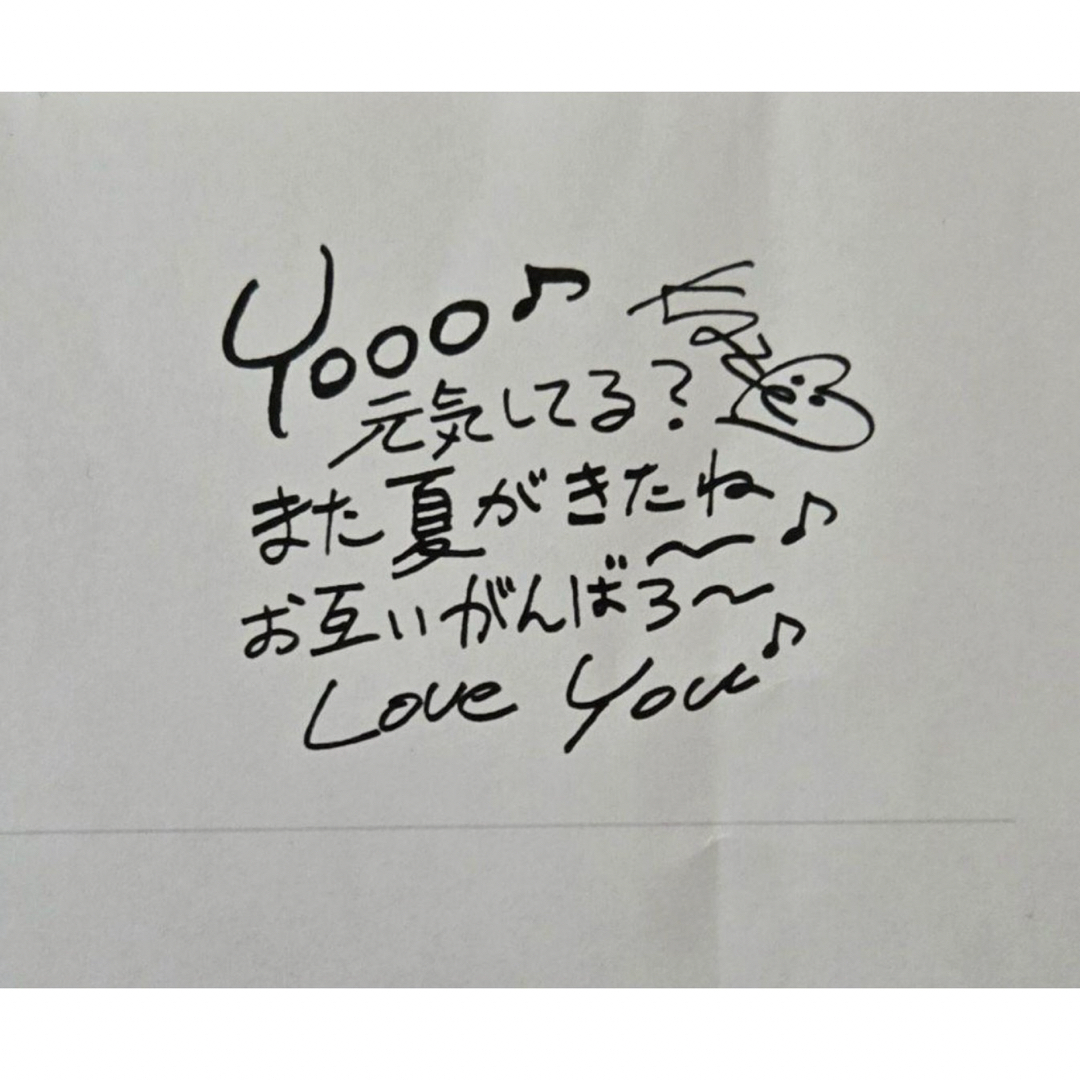 Yooo♪
元気してる?
また夏がきたね〜♪
お互いがんばろ〜♪
Love You